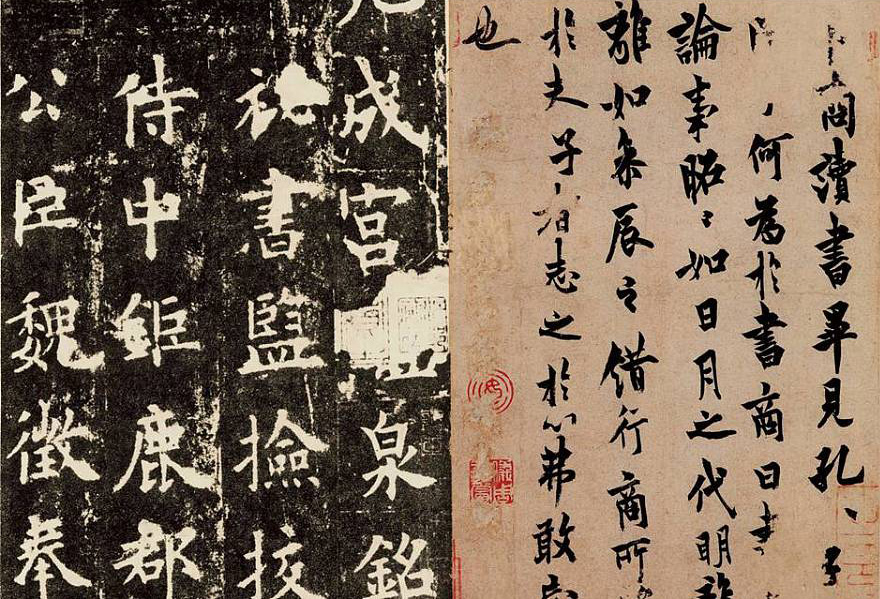 九成宮泉銘
祕書監撿挍
侍中鉅鹿郡
公臣魏徵奉
商讀書畢見孔〻子
何為於書商曰書
論事昭〻如日月之代明離
離如參辰之錯行商所
於夫子者志之於心弗敢忘
也